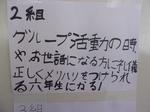 2組
グループ活動の日時
やお世話になる方に礼儀
正しくメリハリをつけられ
る六年生になる!